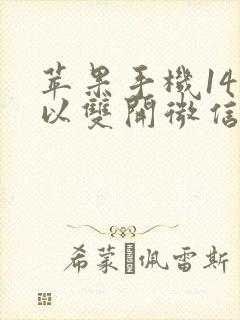 苹果手機14
以雙開微信
希蒙·佩雷斯